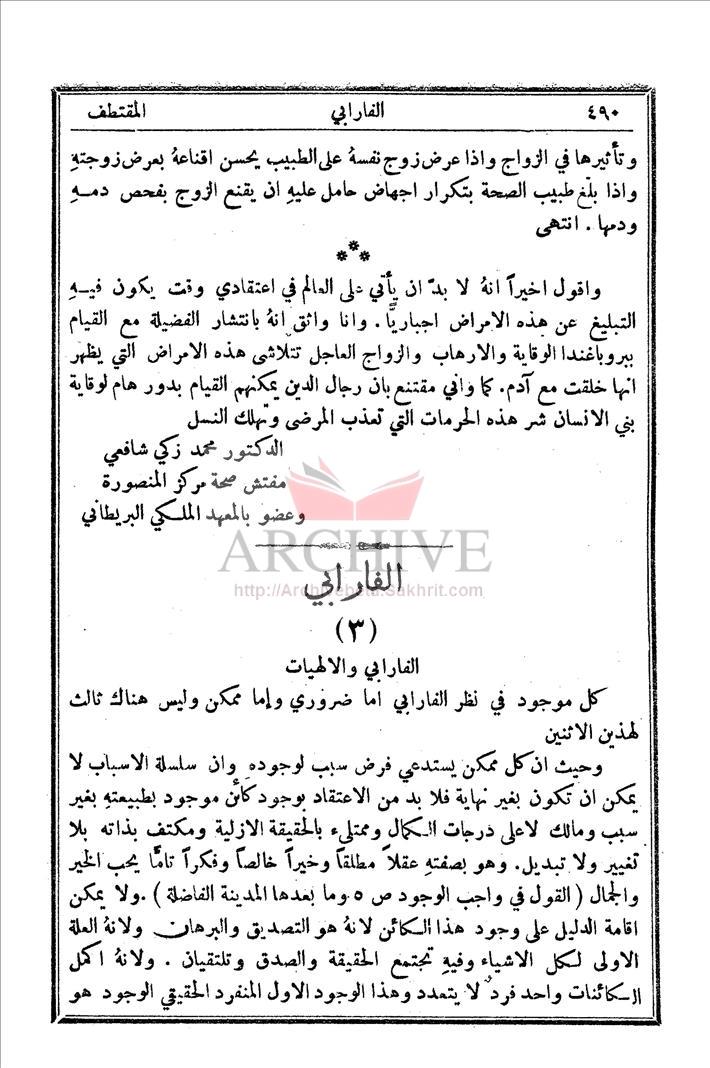 ٤٩٠ الفارابي المقتطف
وتأثيرها في الزواج واذا عرض زوج نفسهُ على الطبيب يحسن اقناعهُ بعرض زوجتهِ
واذا بلّغ طبيب الصحة بتكرار اجهاض حامل عليهِ ان يقنع الزوج بفحص دمهِ
ودمها . انتهى
***
واقول اخيراً انهُ لا بدّ ان يأتي على العالم في اعتقادي وقت يكون فيهِ
التبليغ عن هذه الامراض اجباريًّا . وانا واثق انهُ بانتشار الفضيلة مع القيام
ببروباغندا الوقاية والارهاب والزواج العاجل تتلاشى هذه الامراض التي يظهر
انها خلقت مع آدم . كما واني مقتنع بان رجال الدين يمكنهم القيام بدور هام لوقاية
بني الانسان شر هذه الحرمات التي تعذب المرضى وتهلك النسل
الدكتور محمد زكي شافعي
مفتش صحة مركز المنصورة
وعضو بالمعهد الملكي البريطاني
ARCHIVE
الفارابي
http://Archivebeta.Sakhrit.com
(٣)
الفارابي والالهيات
كل موجود في نظر الفارابي اما ضروري وإما ممكن وليس هناك ثالث
لهذين الاثنين
وحيث ان كل ممكن يستدعي فرض سبب لوجوده وان سلسلة الاسباب لا
يمكن ان تكون بغير نهاية فلا بد من الاعتقاد بوجود كائن موجود بطبيعتهِ بغير
سبب ومالك لاعلى درجات الكمال وممتليء بالحقيقة الازلية ومكتف بذاته بلا
تغيير ولا تبديل . وهو بصفتهِ عقلاً مطلقاً وخيراً خالصاً وفكراً تامًّا يحب الخير
والجمال ( القول في واجب الوجود ص ٥ وما بعدها المدينة الفاضلة ) . ولا يمكن
اقامة الدليل على وجود هذا الكائن لانهُ هو التصديق والبرهان ولانهُ العلة
الاولى لكل الاشياء وفيهِ تجتمع الحقيقة والصدق وتلتقيان . ولانهُ اكمل
الكائنات واحد فردٌ لا يتعدد وهذا الوجود الاول المنفرد الحقيقي الوجود هو